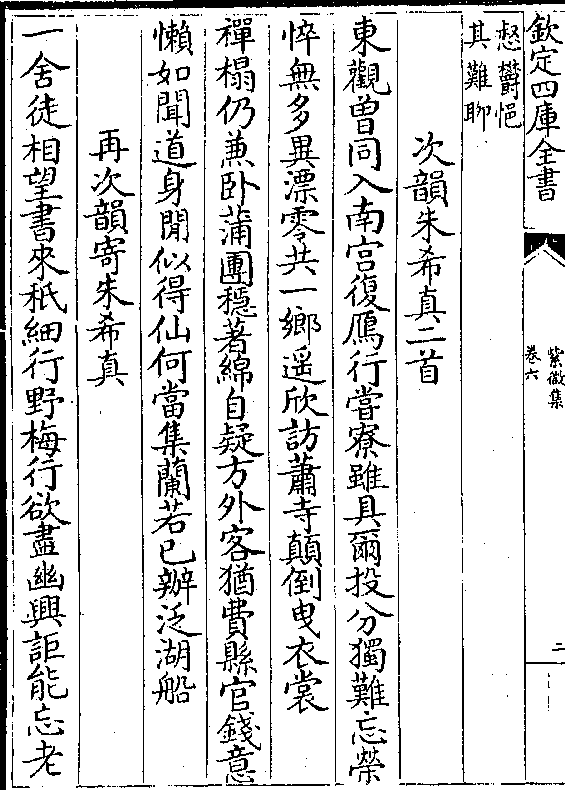 欽定四庫全書
紫微集
卷六
二
愸欝悒
其難聊
次韻朱希真二首
東觀曽同入南宫復鴈行嘗寮雖具爾投分獨難忘榮
悴無多異漂零共一鄉遥欣訪蕭寺顛倒曵衣裳
禪榻仍兼卧蒲團穏著綿自疑方外客猶費縣官錢意
懶如聞道身閒似得仙何當集蘭若已辦泛湖船
再次韻寄朱希真
一舍徒相望書來秖細行野梅行欲盡幽興詎能忘老